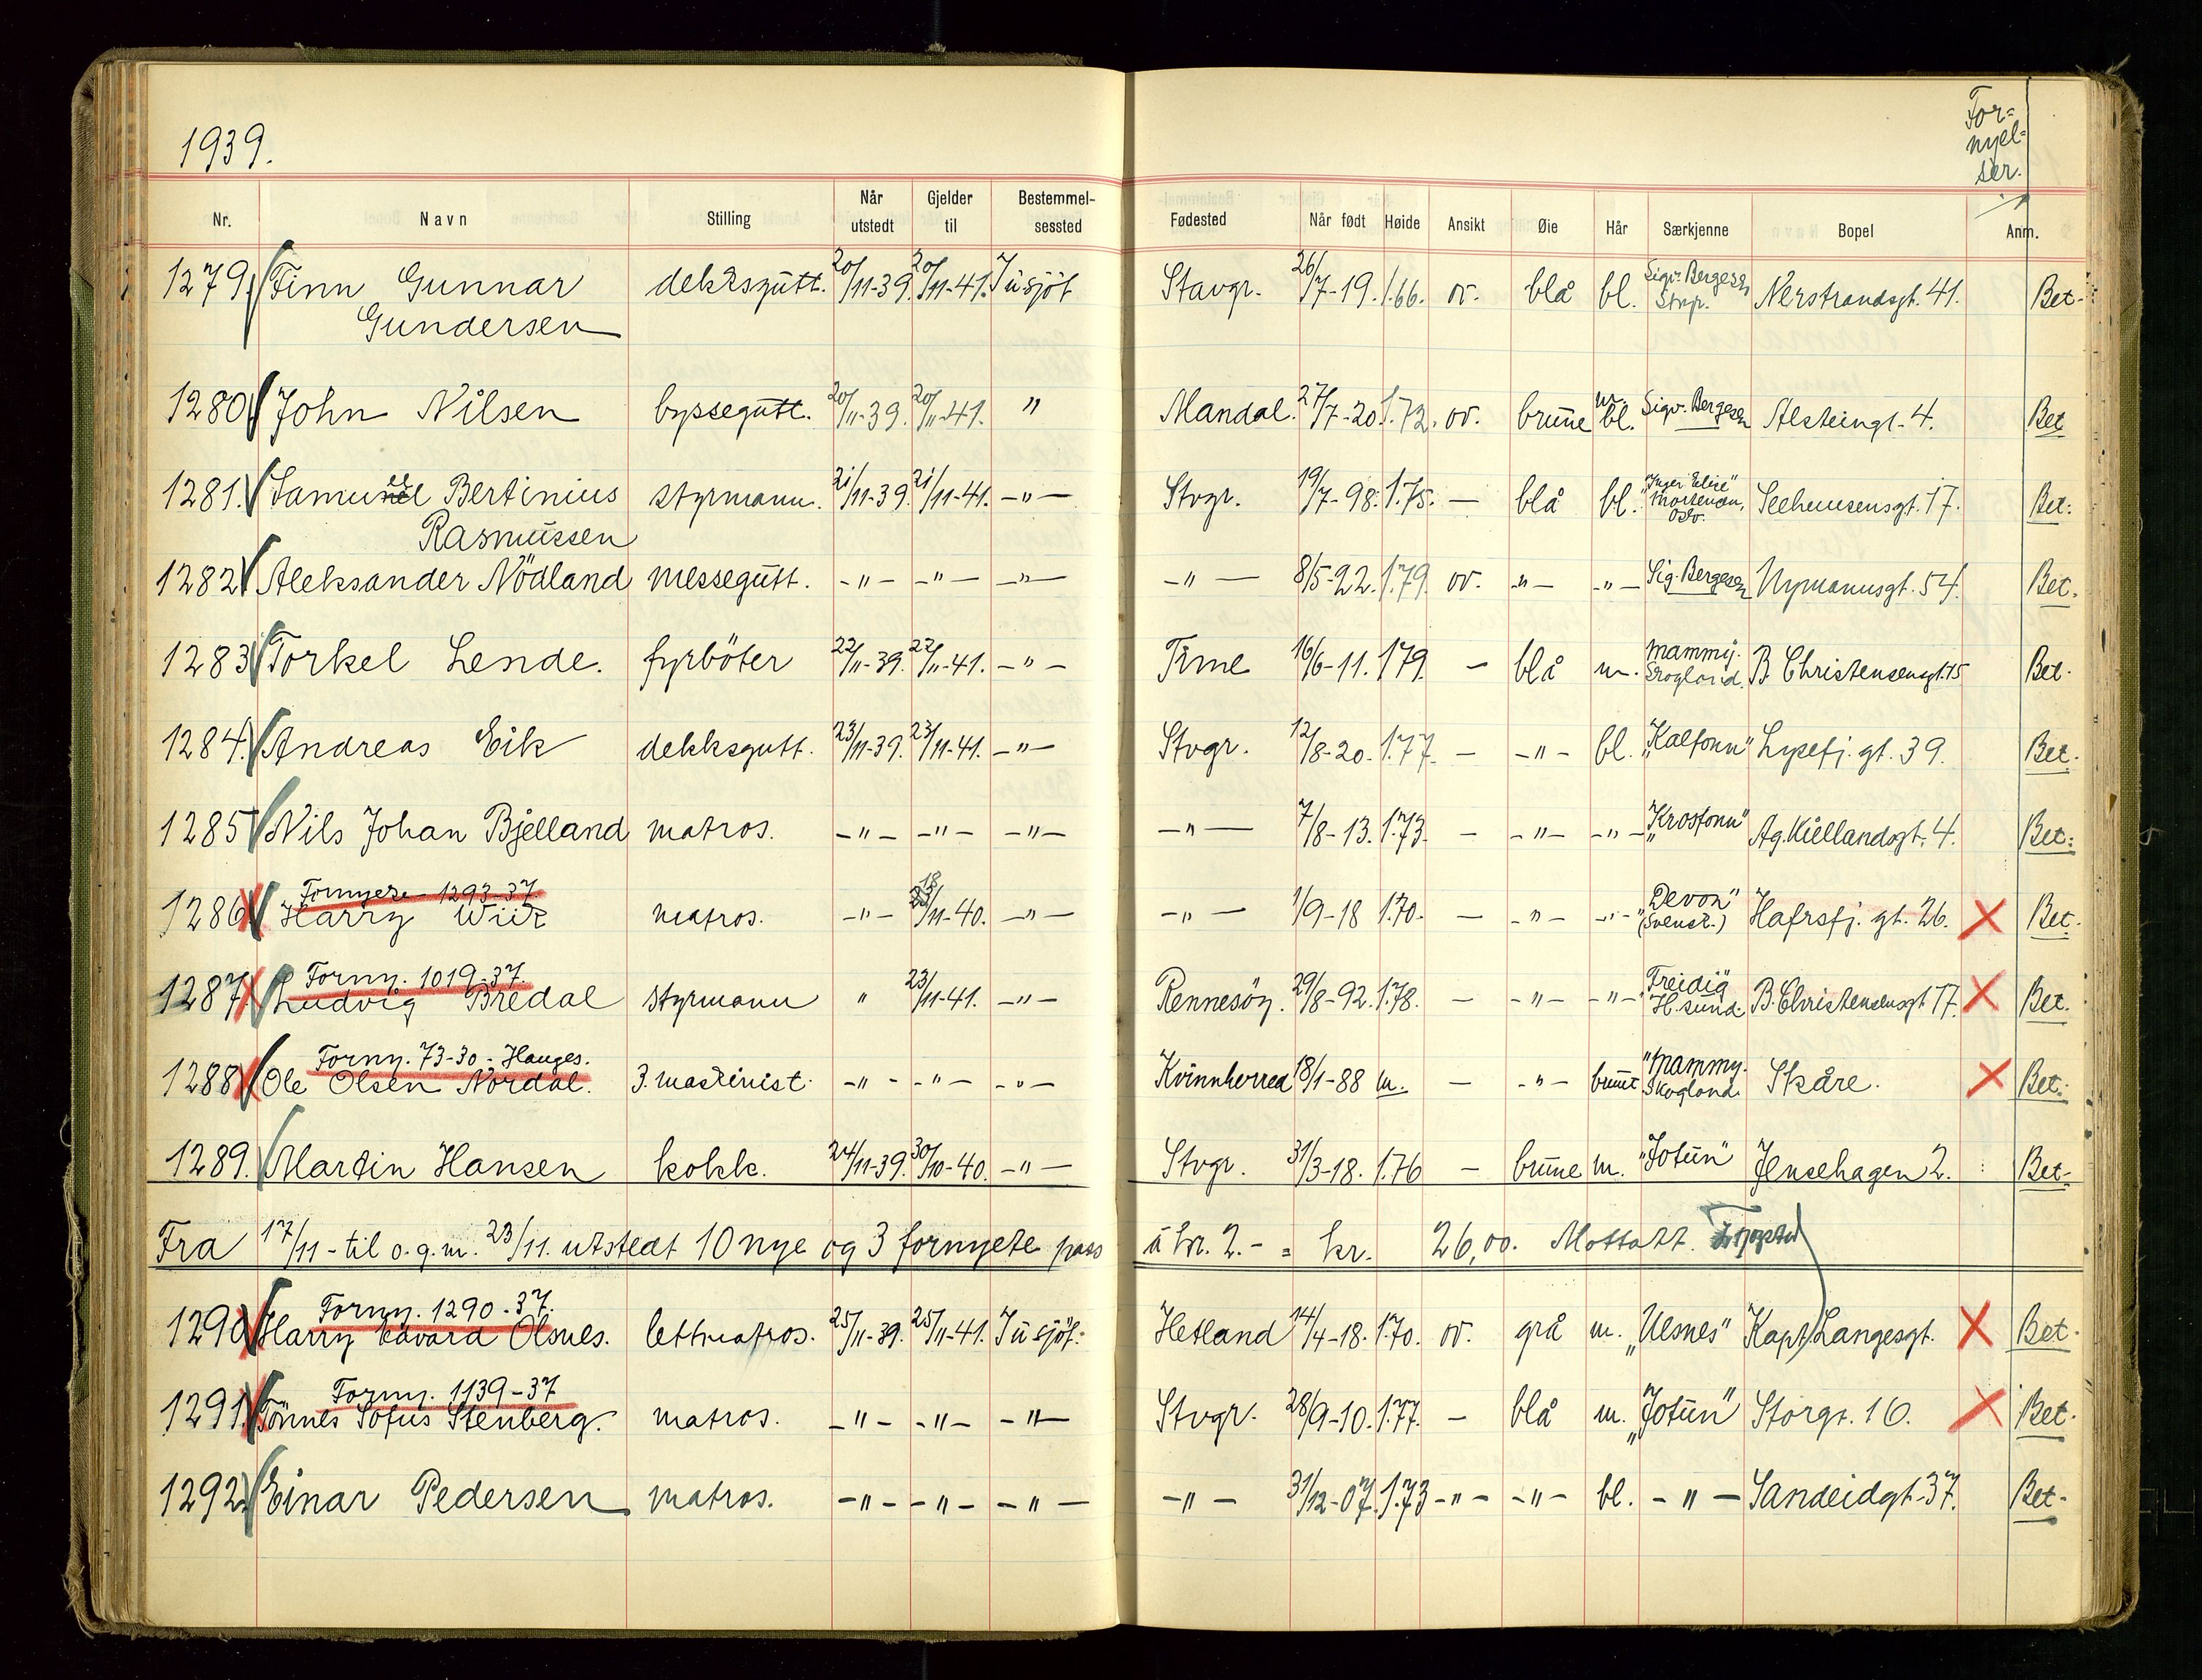 1939.
For=
nyel=
ser.
Nr. Navn Stilling Når utstedt Gjelder til Bestemmel-sessted Fødested Når født Høide Ansikt Øie Hår Særkjenne Bopel Anm.
1279. Finn Gunnar dekksgutt. 20/11-39. 20/11-41. Jusjöf Stavgr. 26/7-19. 1.66. ov. blå bl. Sigv. Bergesen Nerstrandsgt. 41. Bet.
Gundersen
1280. John Nilsen byssegutt. 20/11-39. 20/11-41. " Mandal. 27/7-20. 1.72. ov. brune m. bl. Sigv. Bergesen Alsteingt. 4. Bet
1281. Samuel Bertinius styrmann. 21/11-39. 21/11-41. -"- Stvgr. 19/7-98. 1.75. - blå bl. "Inger Elise" Oslo. 17. Bet.
Rasmussen
1282 Aleksander Nödland messegutt. -"- -"- -"- -"- 8/5-22. 1.79. ov. -"- -"- Sig. Bergesen Nymannsgt. 54. Bet.
1283 Torkel Lende. fyrböter 22/11-39. 22/11-41. -"- Time 16/6-11. 1.79. - blå m. Mammy. Skogland. B. Christensensgt. 15 Bet.
1284. Andreas Eik dekksgutt. 23/11-39. 23/11-41. -"- Stvgr. 12/8-20. 1.77. - -"- bl. "Kalfonn" Lysefj. gt. 39. Bet.
1285 Nils Johan Bjelland matros. -"- -"- -"- -"- 7/8-13. 1.73. - -"- -"- "Krosfonn" Ag. Kiellandsgt. 4. Bet.
Fornyete 1293-37.
1286 Harry Wiik matros. -"- 18/11-40. -"- -"- 1/9-18 1.70. - -"- -"- "Devon" (Svensk.) Hafrsfj. gt. 26. X Bet.
Forny. 1019-37.
1287 Ludvig Bredal styrmann " 23/11-41. -"- Rennesöy. 29/8-92. 1.78. - -"- -"- "Freidig" H.sund. B. Christensensgt. 17. X Bet.
Forny. 73-30 - Hauges.
1288 Ole Olsen Nordal. 3. maskinist. -"- -"- -"- Kvinnherred 18/1-88 m. - -"- brunt "Mammy. Skogland. Skåre. X Bet.
1289. Martin Hansen kokk. 24/11-39. 30/10-40. -"- Stvgr. 31/3-18. 1.76 - brune m. "Jotun" Jensehagen 2. Bet.
Fra 17/11 - til o.g.m. 23/11. utstedt 10 nye og 3 fornyete pass á kr. 2.- = kr. 26,00. Mottatt.
Forny. 1290-37.
1290 Harry Edvard Olsnes. lettmatros. 25/11-39. 25/11-41. Jusjöf. Hetland 14/4-18. 1.70. ov. grå m. "Ulsnes" Kapt. Langesgt. X Bet.
Forny. 1139-37
1291. Tönnes Sofus Stenberg. matros. -"- -"- -"- Stvgr. 28/9-10. 1.77. - blå m. "Jotun" Storgt. 16. X Bet.
1292. Einar Pedersen matros. -"- -"- -"- -"- 31/12-07. 1.73 -"- -"- bl. -"- Sandeidgt. 37. Bet.